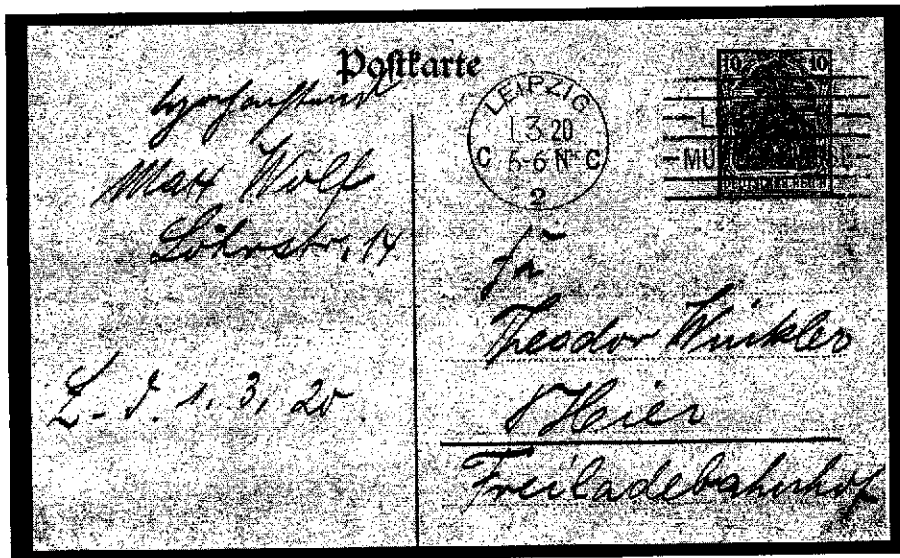 Postkarte
Max Wolf
Löhrstr. 14
L. d. 1. 3. 20.
LEIPZIG
1.3.20
5-6 N
C C
2
10 10
DEUTSCHES REICH
Fa
Theodor Winkler
Hier
Freiladebahnhof